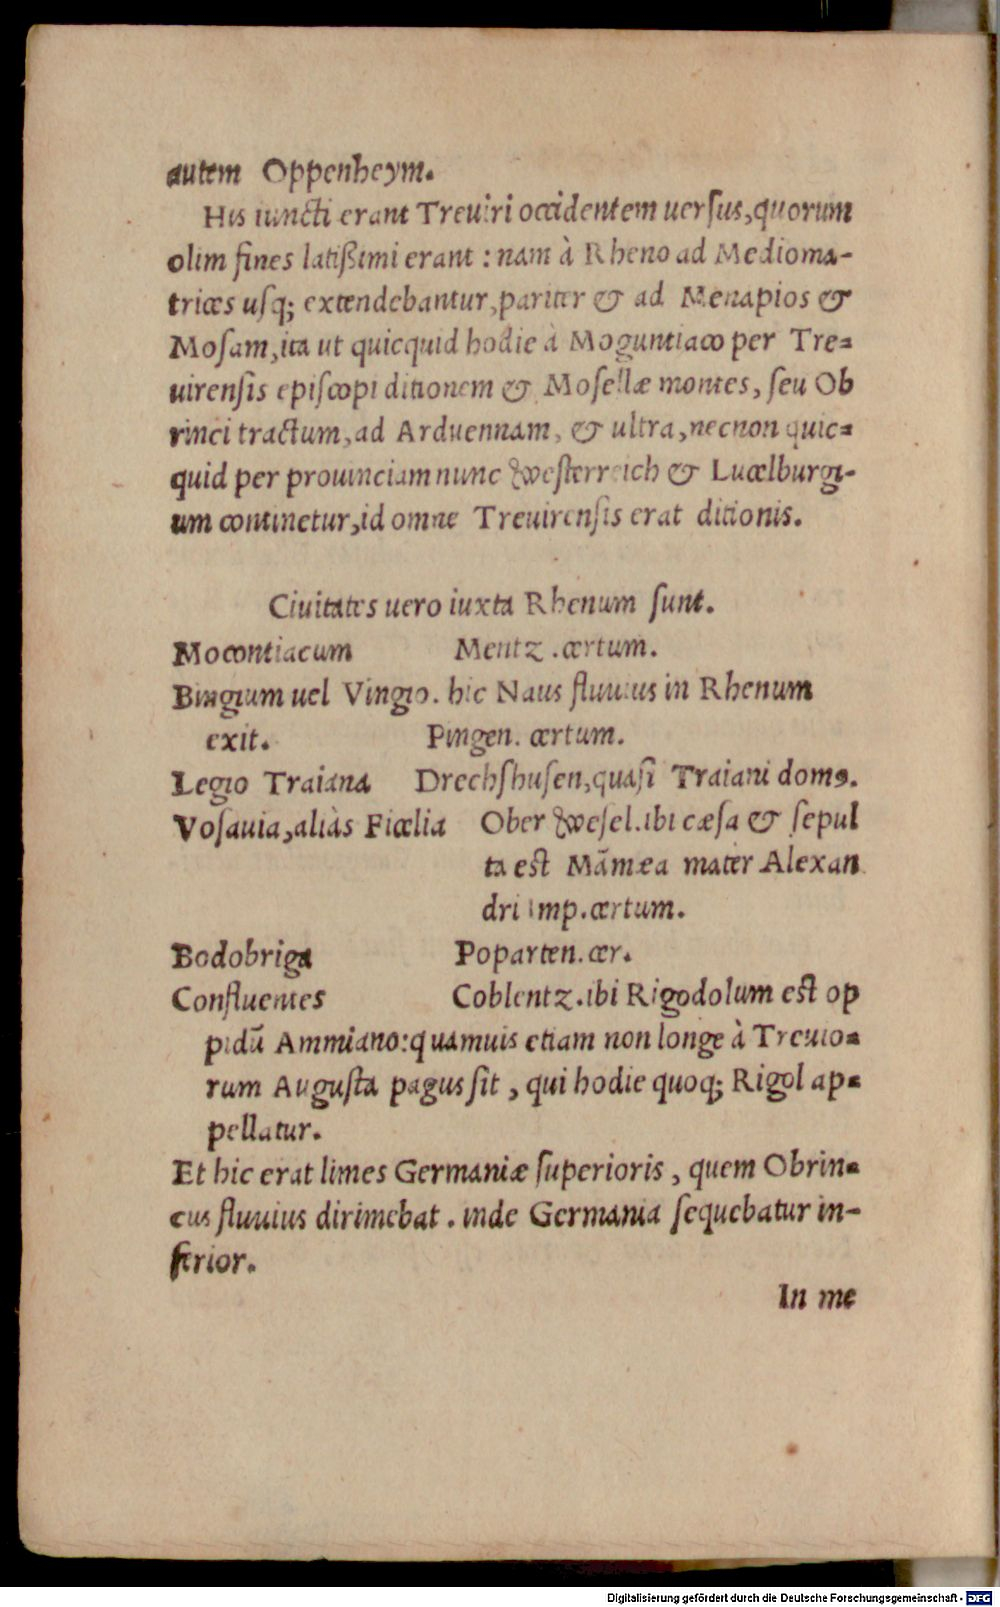 autem Oppenheym.
His iuncti erant Treuiri occidentem uersus, quorum
olim fines latißimi erant : nam à Rheno ad Medioma-
trices usq; extendebantur, pariter & ad Menapios &
Mosam, ita ut quicquid hodie à Moguntiaco per Tre-
uirensis episcopi ditionem & Mosellæ montes, seu Ob
rinci tractum, ad Arduennam, & ultra, necnon quic-
quid per prouinciam nunc Westerreich & Lucelburgi-
um continetur, id omne Treuirensis erat ditionis.
Ciuitates uero iuxta Rhenum sunt.
Mocontiacum Mentz. certum.
Bingium uel Vingio. hic Naus fluuius in Rhenum
exit. Pingen. certum.
Legio Traiana Drechshusen, quasi Traiani domꝰ.
Vosauia, aliàs Ficelia Ober Wesel. ibi cæsa & sepul
ta est Mãmæa mater Alexan
dri Imp. certum.
Bodobriga Poparten. cer.
Confluentes Coblentz. ibi Rigodolum est op
pidũ Ammiano: quamuis etiam non longe à Treuio-
rum Augusta pagus sit, qui hodie quoq; Rigol ap-
pellatur.
Et hic erat limes Germaniæ superioris, quem Obrin-
cus fluuius dirimebat. inde Germania sequebatur in-
ferior.
In me
Digitalisierung gefördert durch die Deutsche Forschungsgemeinschaft - DFG